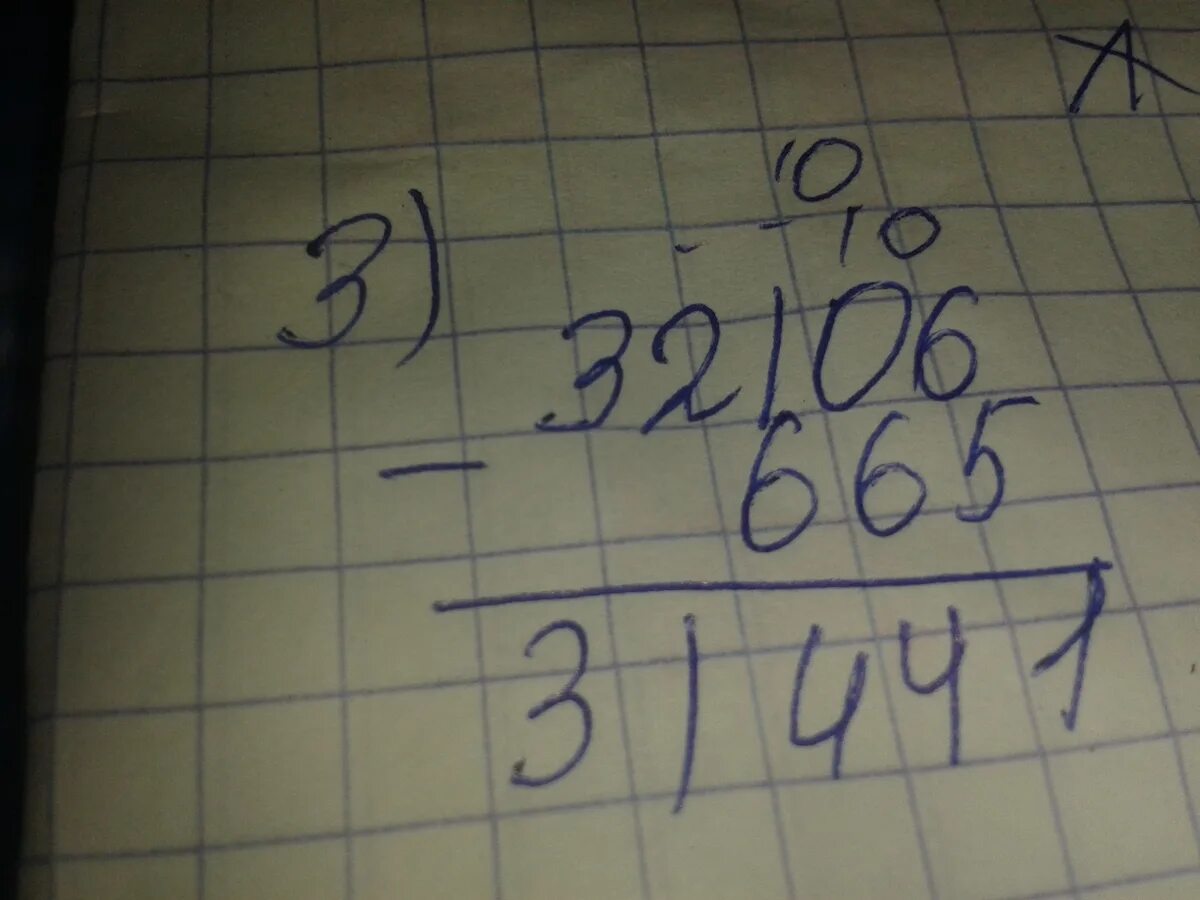 10
3) 10
32106
−
665
31441